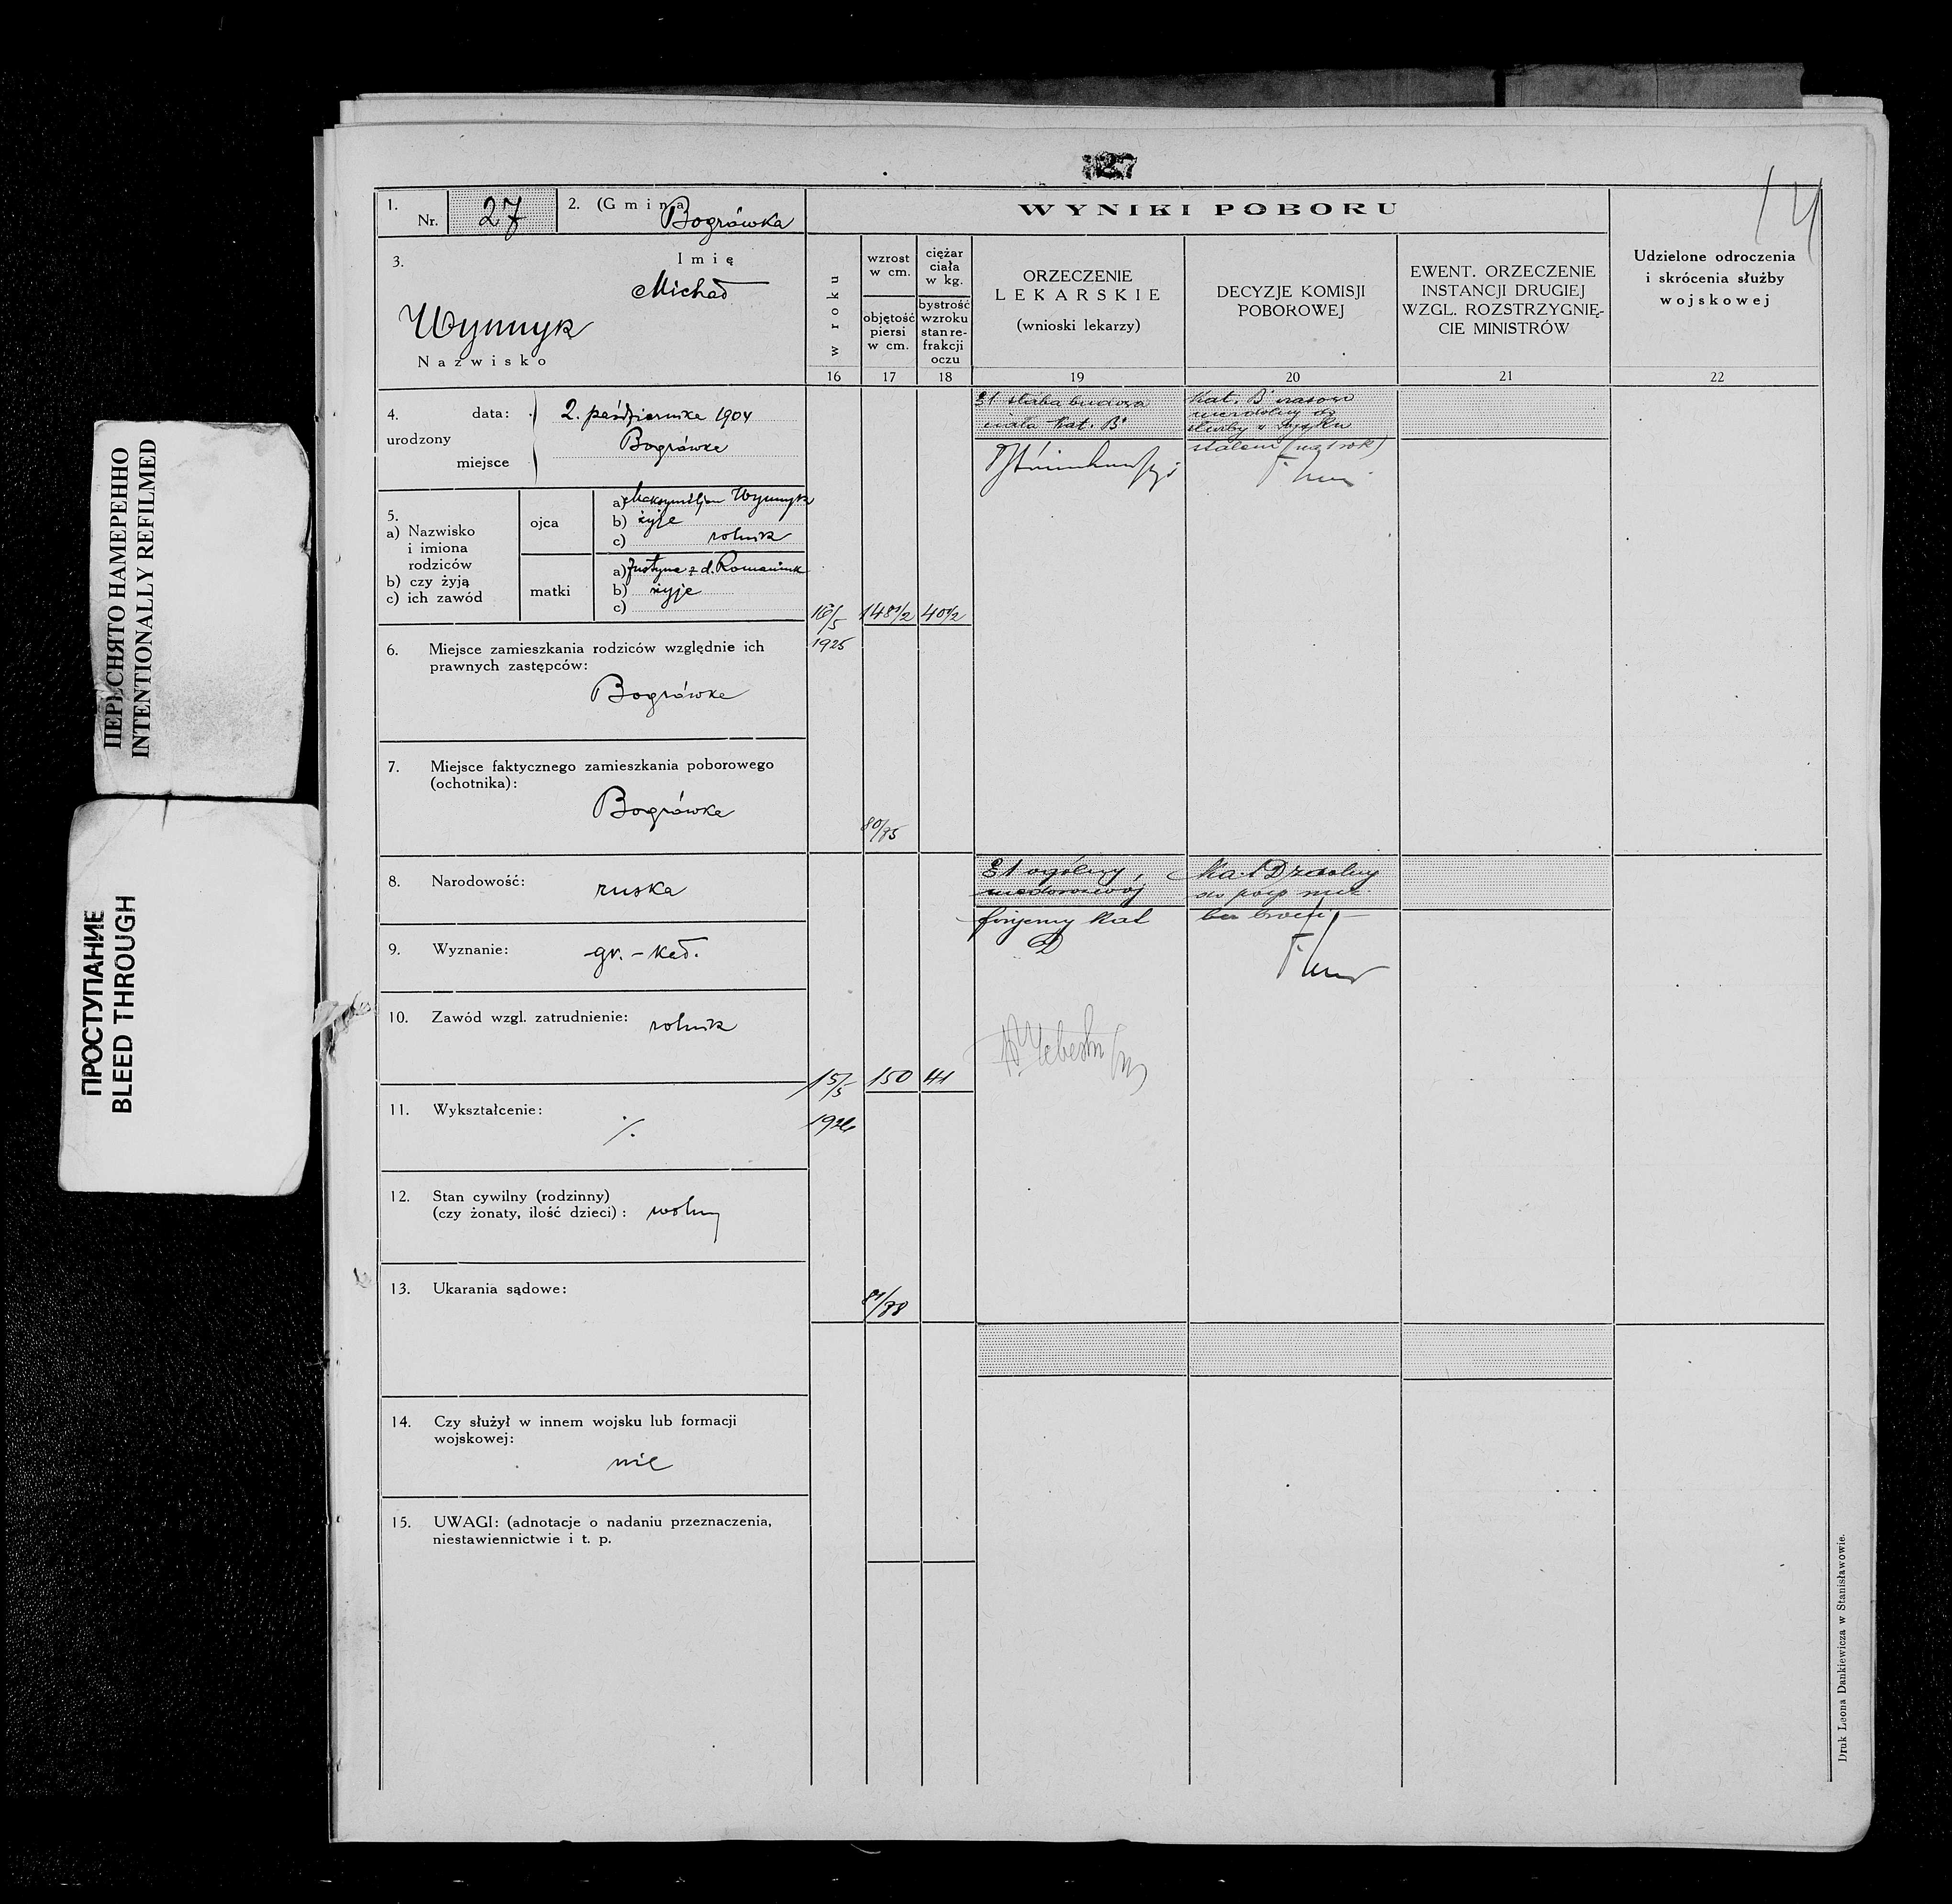 27
14
1.
Nr. 27
2. (Gmina) Bogrówka
WYNIKI POBORU
3.
Imię
Michał
Wynnyk
Nazwisko
w roku
wzrost
w cm.
objętość
piersi
w cm.
ciężar
ciała
w kg.
bystrość
wzroku
stan re-
frakcji
oczu
ORZECZENIE
LEKARSKIE
(wnioski lekarzy)
DECYZJE KOMISJI
POBOROWEJ
EWENT. ORZECZENIE
INSTANCJI DRUGIEJ
WZGL. ROZSTRZYGNIĘ-
CIE MINISTRÓW
Udzielone odroczenia
i skrócenia służby
wojskowej
16 17 18 19 20 21 22
4. data: 2. października 1904
urodzony Bogrówka
miejsce
5.
a) Nazwisko
i imiona
rodziców
b) czy żyją
c) ich zawód
ojca
a) Maksymiljan Wynnyk
b) żyje
c) rolnik
matki
a) Justyna z d. Romaniuk
b) żyje
c)
6. Miejsce zamieszkania rodziców względnie ich
prawnych zastępców:
Bogrówka
7. Miejsce faktycznego zamieszkania poborowego
(ochotnika):
Bogrówka
8. Narodowość: ruska
9. Wyznanie: gr.-kat.
10. Zawód wzgl. zatrudnienie: rolnik
11. Wykształcenie:
./.
12. Stan cywilny (rodzinny)
(czy żonaty, ilość dzieci): wolny
13. Ukarania sądowe:
14. Czy służył w innem wojsku lub formacji
wojskowej:
nie
15. UWAGI: (adnotacje o nadaniu przeznaczenia,
niestawiennictwie i t. p.
16/5 148 1/2 40 1/2
1925
80/85
31 słaba budowa
ciała Kat. B
Kat. B czasowo
niezdolny do
służby w wojsku
stałem (na 1 rok)
15/5 150 41
1926
81/88
31 ogólny
niedorozwój
fizyczny Kat
D
Kat D zdolny
do posp rusz
bez broni
Druk Leona Dankiewicza w Stanisławowie.
ПЕРЕСНЯТО НАМЕРЕННО
INTENTIONALLY REFILMED
ПРОСТУПАНИЕ
BLEED THROUGH